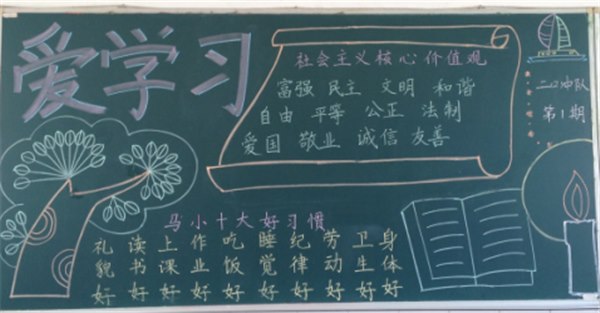 爱学习
社会主义核心价值观
富强 民主 文明 和谐
自由 平等 公正 法制
爱国 敬业 诚信 友善
中队
第1期
马小十大好习惯
礼貌好
读书好
上课好
作业好
吃饭好
睡觉好
纪律好
劳动好
卫生好
身体好